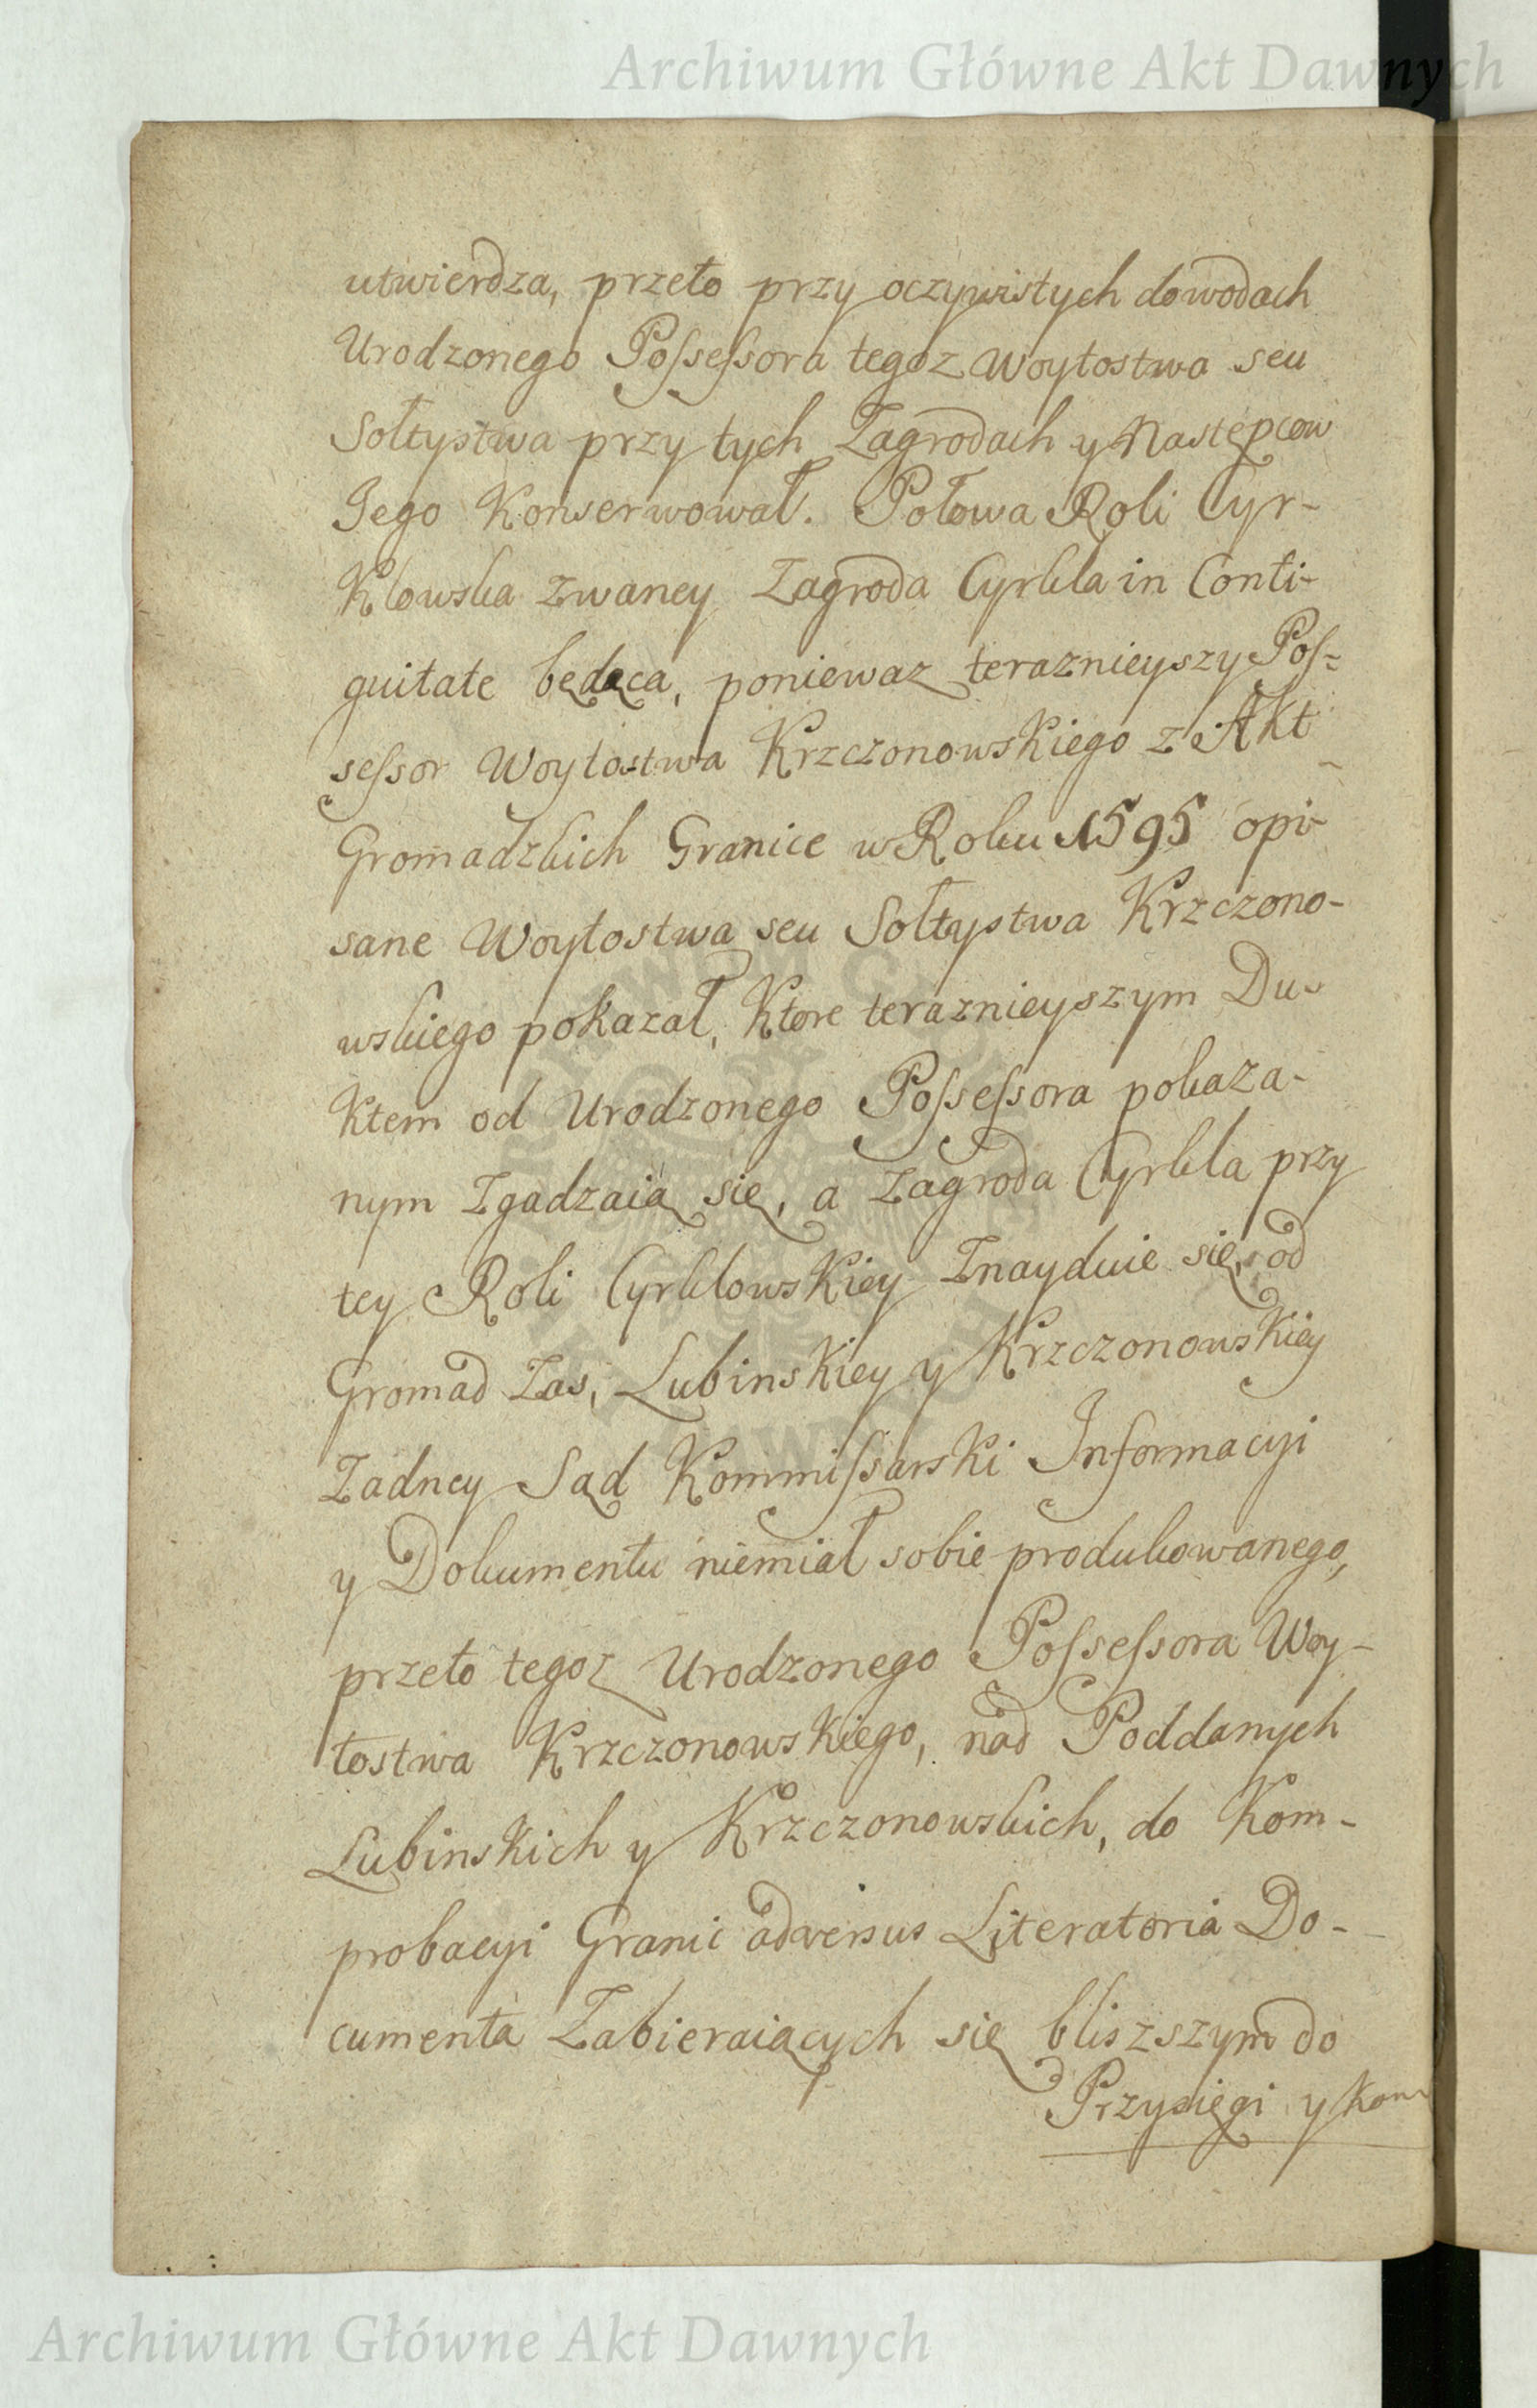 Archiwum Główne Akt Dawnych
utwierdza, przeto przy oczywistych dowodach
Urodzonego Possessora tegoz Woytostwa seu
Sołtystwa przy tych Zagrodach y Następcow
Jego Konserwował. Połowa Roli Cyr-
Klowska zwaney Zagroda Cyrkla in Conti-
guitate będąca, poniewaz teraznieyszy Pos-
sessor Woytostwa Krzczonowskiego z Akt
Gromadzkich Granice w Roku 1595 opi-
sane Woytostwa seu Sołtystwa Krzczono-
wskiego pokazał, Ktore teraznieyszym Du-
Ktem od Urodzonego Possessora pokaza-
nym Zgadzaią się, a Zagroda Cyrkla przy
tey Roli Cyrklowskiey Znayduie się, od
Gromad Zas, Lubinskiey y Krzczonowskiey
Zadney Sąd Kommissarski Informacyi
y Dokumentu niemiał sobie produkowanego,
przeto tegoz Urodzonego Possessora Woy-
tostwa Krzczonowskiego, nad Poddanych
Lubinskich y Krzczonowskich, do Kom-
probacyi Granic adversus Literatoria Do-
cumenta Zabieraiących się bliszszym do
Przysięgi y Kom
Archiwum Główne Akt Dawnych